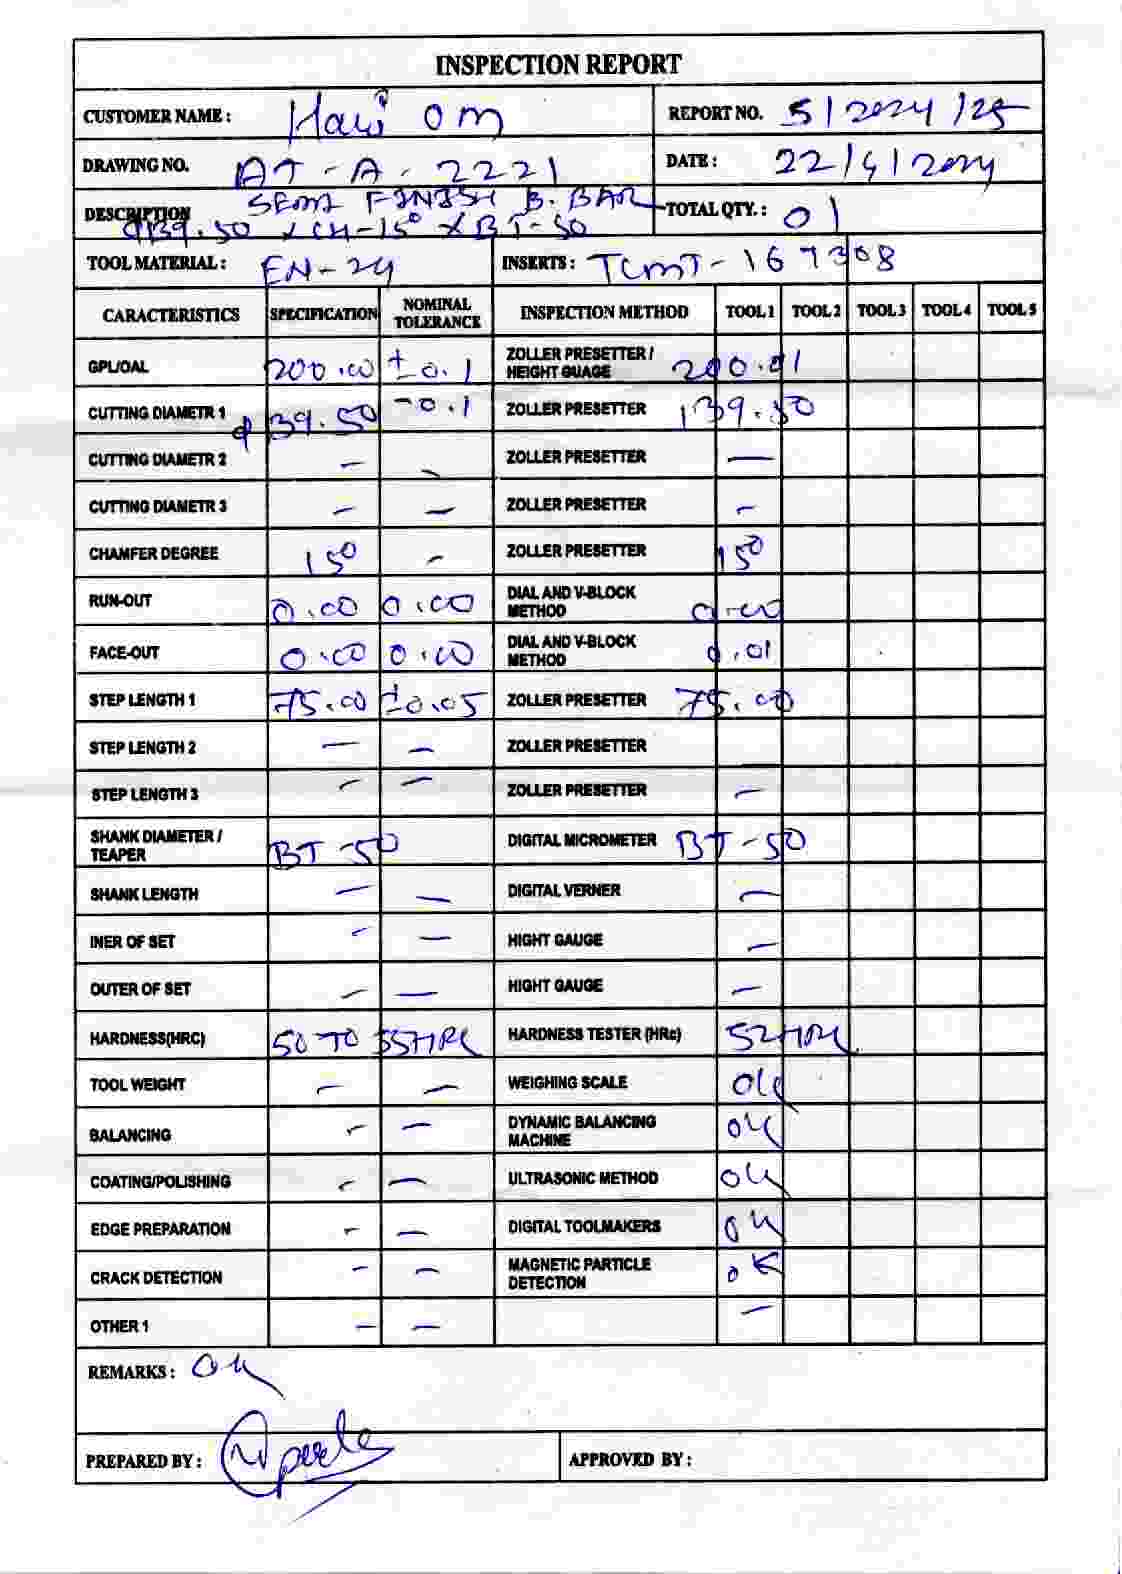 INSPECTION REPORT
CUSTOMER NAME : Hari Om
REPORT NO. 5/2024/25
DRAWING NO. AT-A-2221
DATE : 22/4/2024
DESCRIPTION SEMI FINISH B. BAR
φ139.50 x CH-15° x BT-50
TOTAL QTY. : 01
TOOL MATERIAL : EN-24
INSERTS : TCMT-16T308
CARACTERISTICS SPECIFICATION NOMINAL TOLERANCE INSPECTION METHOD TOOL 1 TOOL 2 TOOL 3 TOOL 4 TOOL 5
GPL/OAL 200.00 ±0.1 ZOLLER PRESETTER / HEIGHT GUAGE 200.01
CUTTING DIAMETR 1 φ139.50 -0.1 ZOLLER PRESETTER 139.50
CUTTING DIAMETR 2 - - ZOLLER PRESETTER -
CUTTING DIAMETR 3 - - ZOLLER PRESETTER -
CHAMFER DEGREE 15° - ZOLLER PRESETTER 15°
RUN-OUT 0.00 0.00 DIAL AND V-BLOCK METHOD 0.00
FACE-OUT 0.00 0.00 DIAL AND V-BLOCK METHOD 0.01
STEP LENGTH 1 75.00 ±0.05 ZOLLER PRESETTER 75.00
STEP LENGTH 2 - - ZOLLER PRESETTER
STEP LENGTH 3 - - ZOLLER PRESETTER -
SHANK DIAMETER / TEAPER BT-50 DIGITAL MICROMETER BT-50
SHANK LENGTH - - DIGITAL VERNER -
INER OF SET - - HIGHT GAUGE -
OUTER OF SET - - HIGHT GAUGE -
HARDNESS(HRC) 50 TO 55HRC HARDNESS TESTER (HRc) 52HRC
TOOL WEIGHT - - WEIGHING SCALE OK
BALANCING - - DYNAMIC BALANCING MACHINE OK
COATING/POLISHING - - ULTRASONIC METHOD OK
EDGE PREPARATION - - DIGITAL TOOLMAKERS OK
CRACK DETECTION - - MAGNETIC PARTICLE DETECTION OK
OTHER 1 - - -
REMARKS : OK
PREPARED BY :
APPROVED BY :